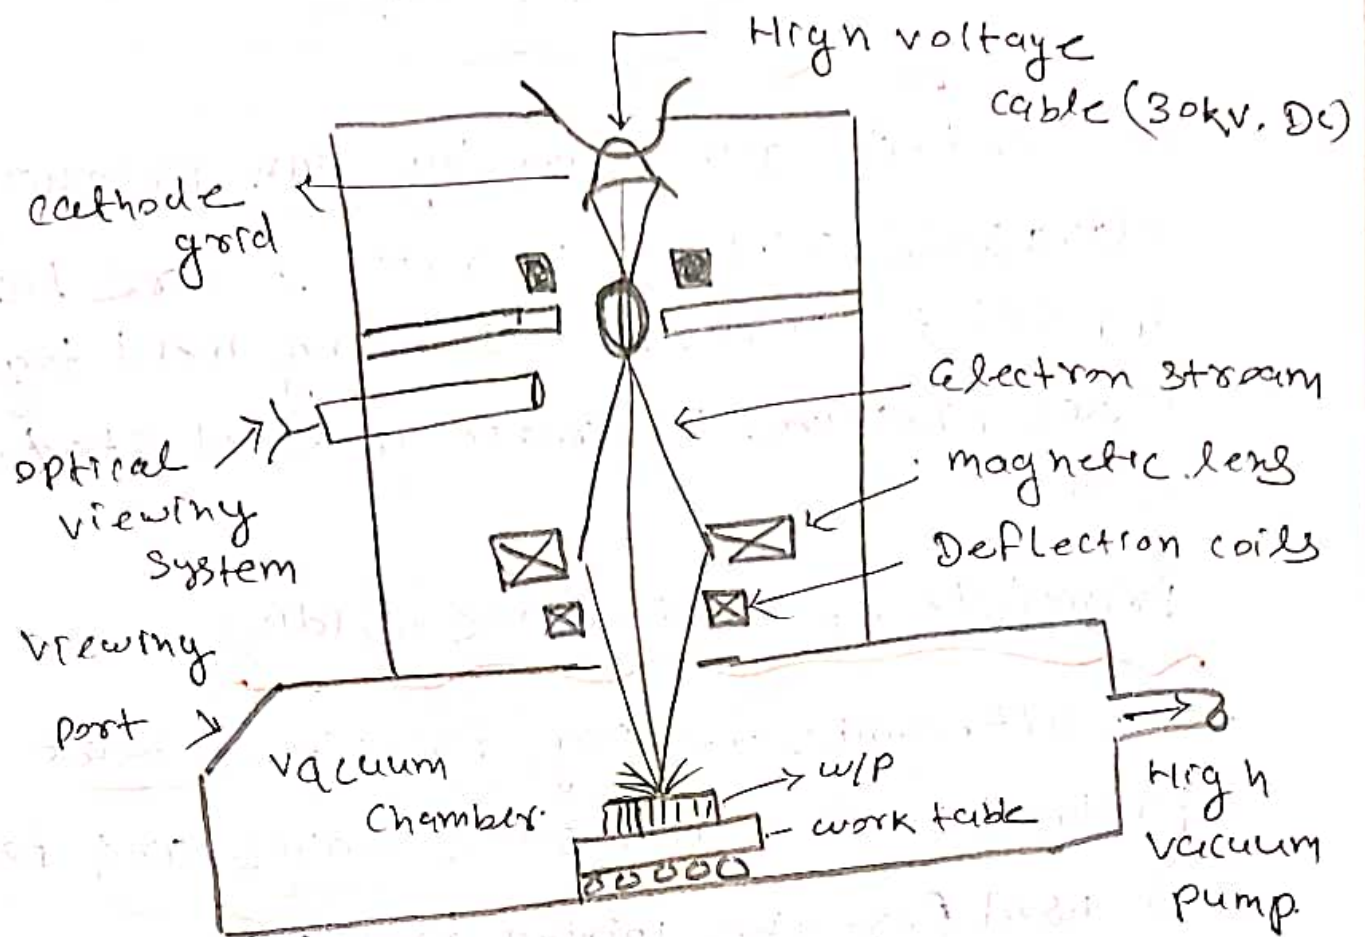 High voltage
cable (30kv. DC)
cathode
grid
Electron stream
magnetic lens
Deflection coils
optical
viewing
system
viewing
port
Vacuum
Chamber.
w/p
work table
High
vacuum
pump.